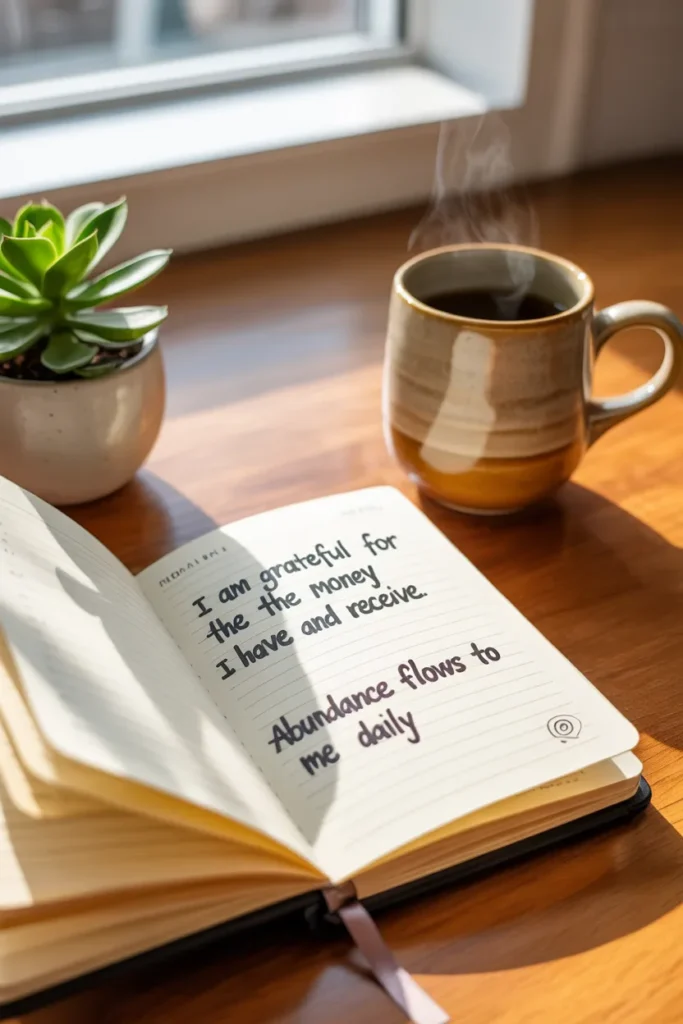 I am grateful for
the the money
I have and receive.
Abundance flows to
me daily